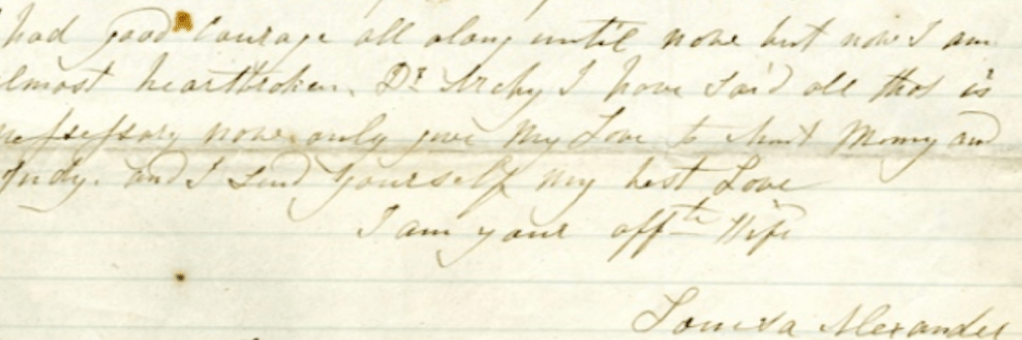 had good Courage all along until now but now I am
almost heartbroken. Dr Archy I have said all that is
nessessary now only give My Love to Aunt Momy and
Judy. and I send yourself my best Love
I am your afft Wife
Louisa Alexander